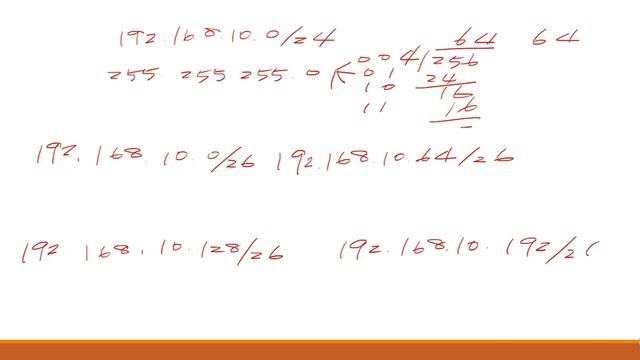 192.168.10.0/24
64 64
255 255 255.0
00
01
10
11
4/256
24
16
16
192.168.10.0/26 192.168.10.64/26
192.168.10.128/26 192.168.10.192/2